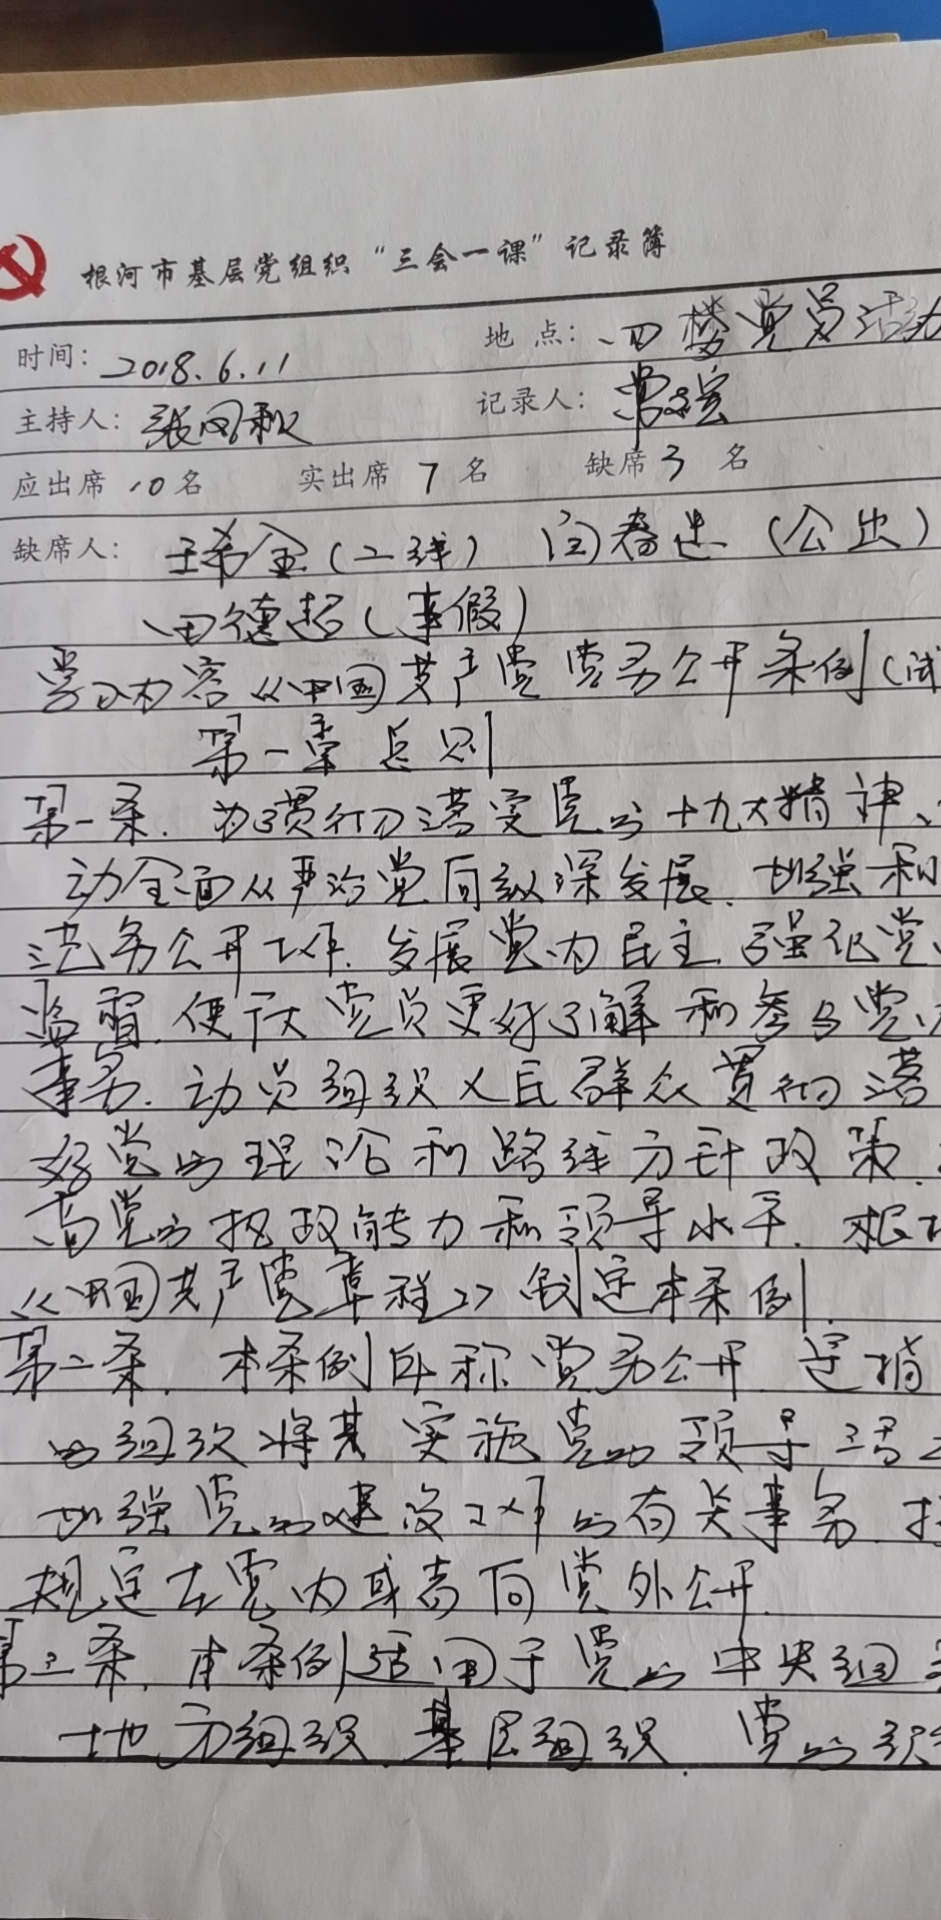 根河市基层党组织“三会一课”记录簿
时间：2018.6.11 地点：四楼党员活动
主持人：张凤秋 记录人：常
应出席10名 实出席7名 缺席3名
缺席人：王希金（二线） 闫春（公出）
田德超（事假）
学习内容《中国共产党党务公开条例（试
第一章 总则
第一条. 为了贯彻落实党的十九大精神、
动全面从严治党向纵深发展. 加强和
党务公开工作. 发展党内民主. 强化党
监督. 使广大党员更好了解和参与党内
事务. 动员组织人民群众贯彻落
好党的理论和路线方针政策.
高党的执政能力和领导水平. 根据
《中国共产党章程》制定本条例.
第二条. 本条例所称党务公开. 是指
的组织将其实施党的领导活
加强党的建设工作的有关事务. 按
规定在党内或者向党外公开.
第三条. 本条例适用于党的中央组织
地方组织. 基层组织. 党的